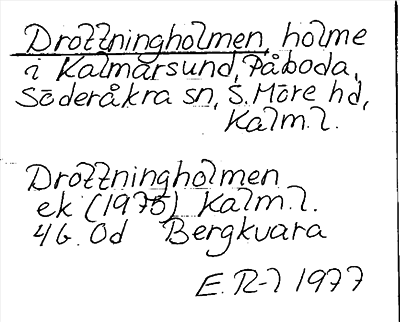 Drottningholmen, holme
i Kalmarsund, Påboda,
Söderåkra sn, S. Möre hd,
Kalm. l.
Drottningholmen
ek (1975) Kalm. l.
4 G. Od Bergkvara
E. R-l 1977